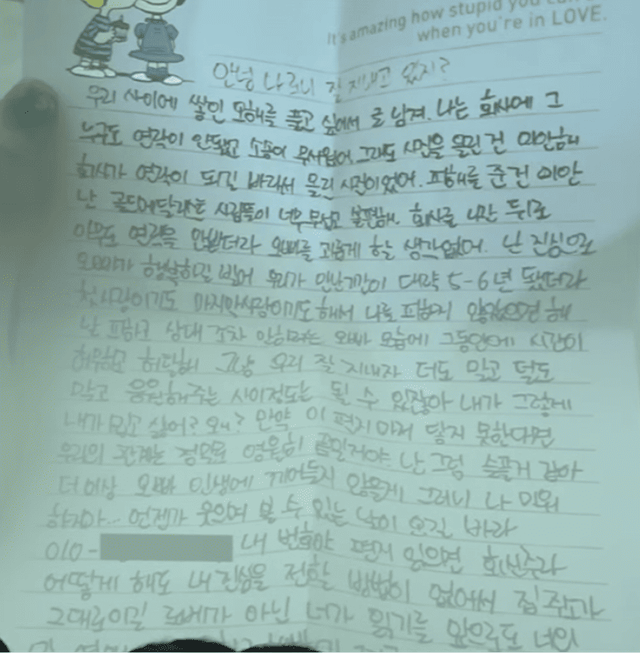 It's amazing how stupid you
when you're in LOVE.
안녕 나르니 잘 지내고 있지?
우리 사이에 쌓인 오해를 풀고 싶어서 글 남겨. 나는 회사에 그
누구도 연락이 안됐고 소름이 무서웠어, 그래도 시선을 돌린건 미안해
회사가 연락이 되길 바래서 올린 시점이었어. 피해를 준건 미안
난 골드메달리스트 사람들이 너무 무섭고 불편해. 회사를 나간 뒤로
아무도 연락을 안받더라 오빠를 괴롭게 할 생각없어. 난 진심으로
오빠가 행복하길 빌어 우리가 만난기간이 대략 5-6년 됐더라
첫사랑이기도 마지막사랑이기도 해서 나를 피하지 않았으면 해
난 피하고 상대 조차 안하려는 오빠 모습에 그동안에 시간이
허무하고 허탈해 그냥 우리 잘 지내자 더도 말고 덜도
말고 응원해주는 사이정도는 될 수 있잖아 내가 그렇게
내가 밉고 싫어? 왜? 만약 이 편지마저 닿지 못한다면
우리의 관계는 정말로 영원히 끝일거야. 난 그럼 슬플거 같아
더이상 오빠 인생에 끼어들지 않을게 그러니 나 미워
하지마... 언젠가 웃으며 볼 수 있는 날이 오길 바라
010- 내 번호야 편지 읽으면 회신주라
어떻게 해도 내 진심을 전할 방법이 없어서 집주소가
그대로이길 로베가 아닌 너가 읽기를 앞으로도 너의